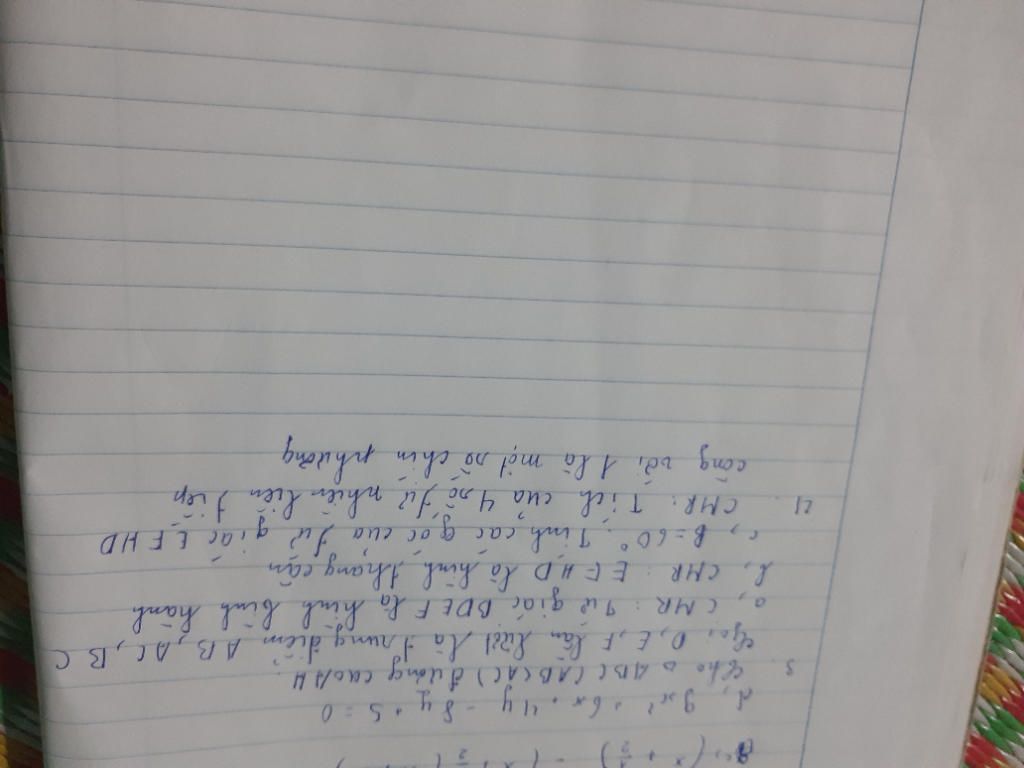 (x + 1/2) - (x + 1/2) (
d, 9x² + 6x + 4y - 8y + 5 = 0
3. Cho Δ ABC (AB<AC) đường cao AH.
Gọi D, E, F lần lượt là trung điểm AB, AC, BC
a, CMR: Tứ giác BDEF là hình bình hành
b, CMR: EFHD là hình thang cân
c, B = 60°. Tính các góc của tứ giác EFHD
4. CMR: Tích của 4 số tự nhiên liên tiếp
cộng với 1 là một số chín phương